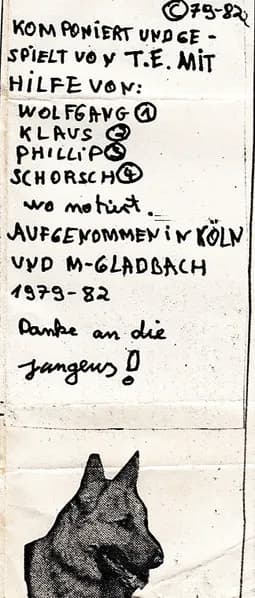 ©79-82
KOMPONIERT UND GE-
SPIELT VON T.E. MIT
HILFE VON:
WOLFGANG ①
KLAUS ②
PHILLIP ③
SCHORSCH ④
wo notiert.
AUFGENOMMEN IN KÖLN
UND M-GLADBACH
1979-82
Danke an die
Jungens!